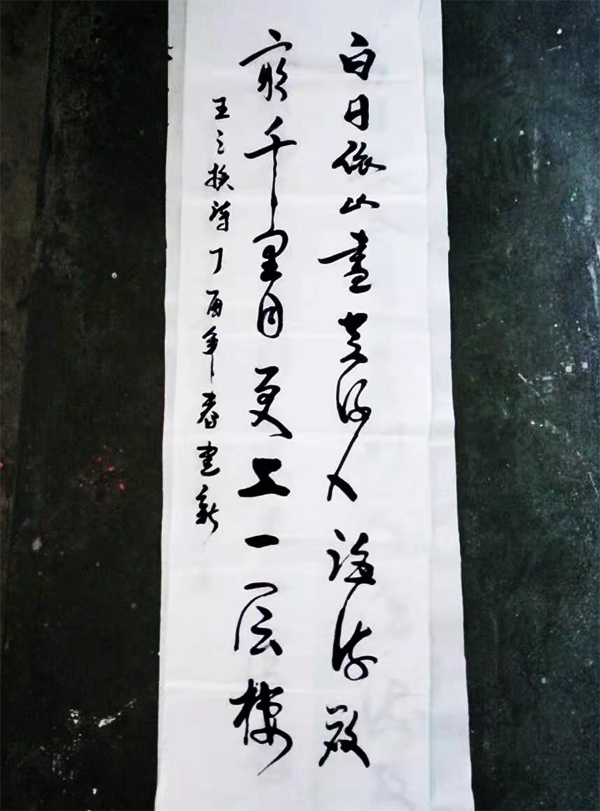 白日依山盡黄河入海流欲
窮千里目更上一层楼
王之涣诗丁酉年春建新